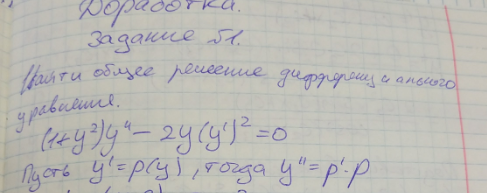 Доработка.
Задание №1.
Найти общее решение дифференциального
уравнение.
(1+y²)y" - 2y(y')² = 0
Пусть y' = p(y), тогда y" = p'·p